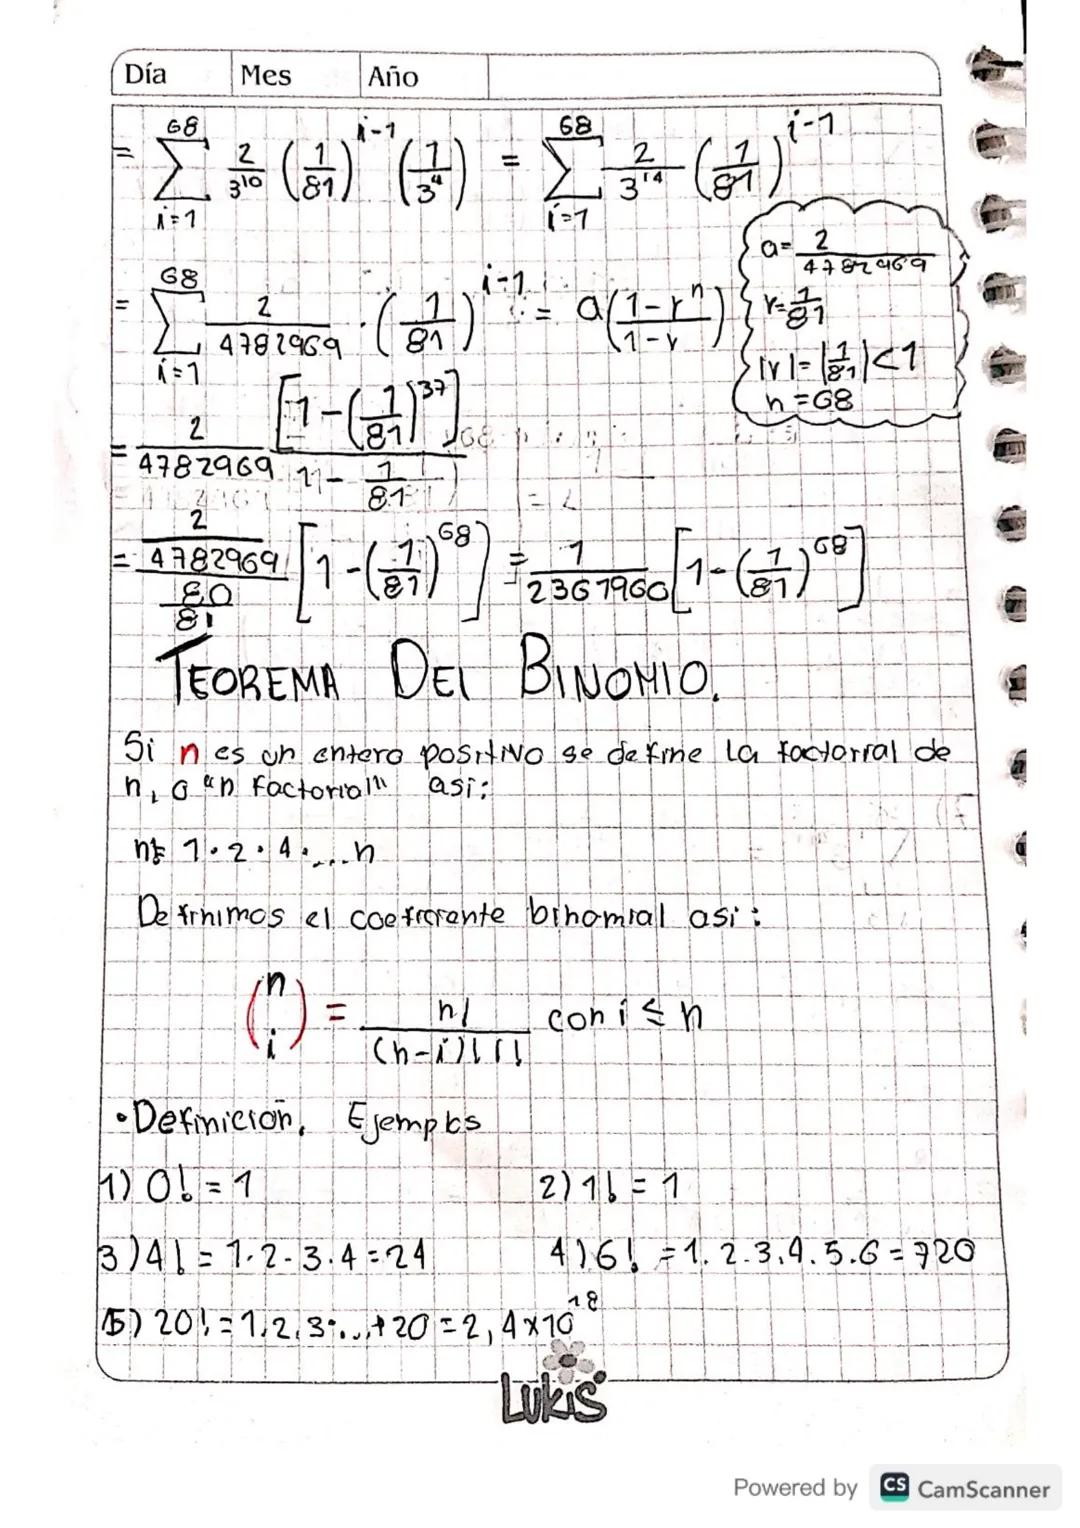 Día Mes Año
= 68 ∑ i=1 2/3^10 (1/81)^i-1 (1/3^4) = 68 ∑ i=1 2/3^14 (1/81)^i-1
a= 2/4782969
= 68 ∑ i=1 2/4782969 · (1/81)^i-1 = a(1-r^n)/(1-r)
r=1/81
|r|=|1/81|<1
n=68
= 2/4782969 [1-(1/81)^37]/11-1/81
= 2/4782969/80/81 [1-(1/81)^68] = 1/2361960 [1-(1/81)^68]
TEOREMA DEl BINOMIO.
Si n es un entero positivo se define la factorial de
n, o "n factorial" asi:
n!= 1·2·4·...n
Definimos el coeficiente binomial asi:
(n i) = n!/(n-i)!i! con i ≤ n
•Definición. Ejemplos
1) 0! = 1 2) 1! = 1
3) 4! = 1·2·3·4 = 24 4) 6! = 1.2.3.4.5.6 = 720
5) 20! = 1.2.3·...+20 = 2,4x10^18
LUKIS
Powered by CS CamScanner